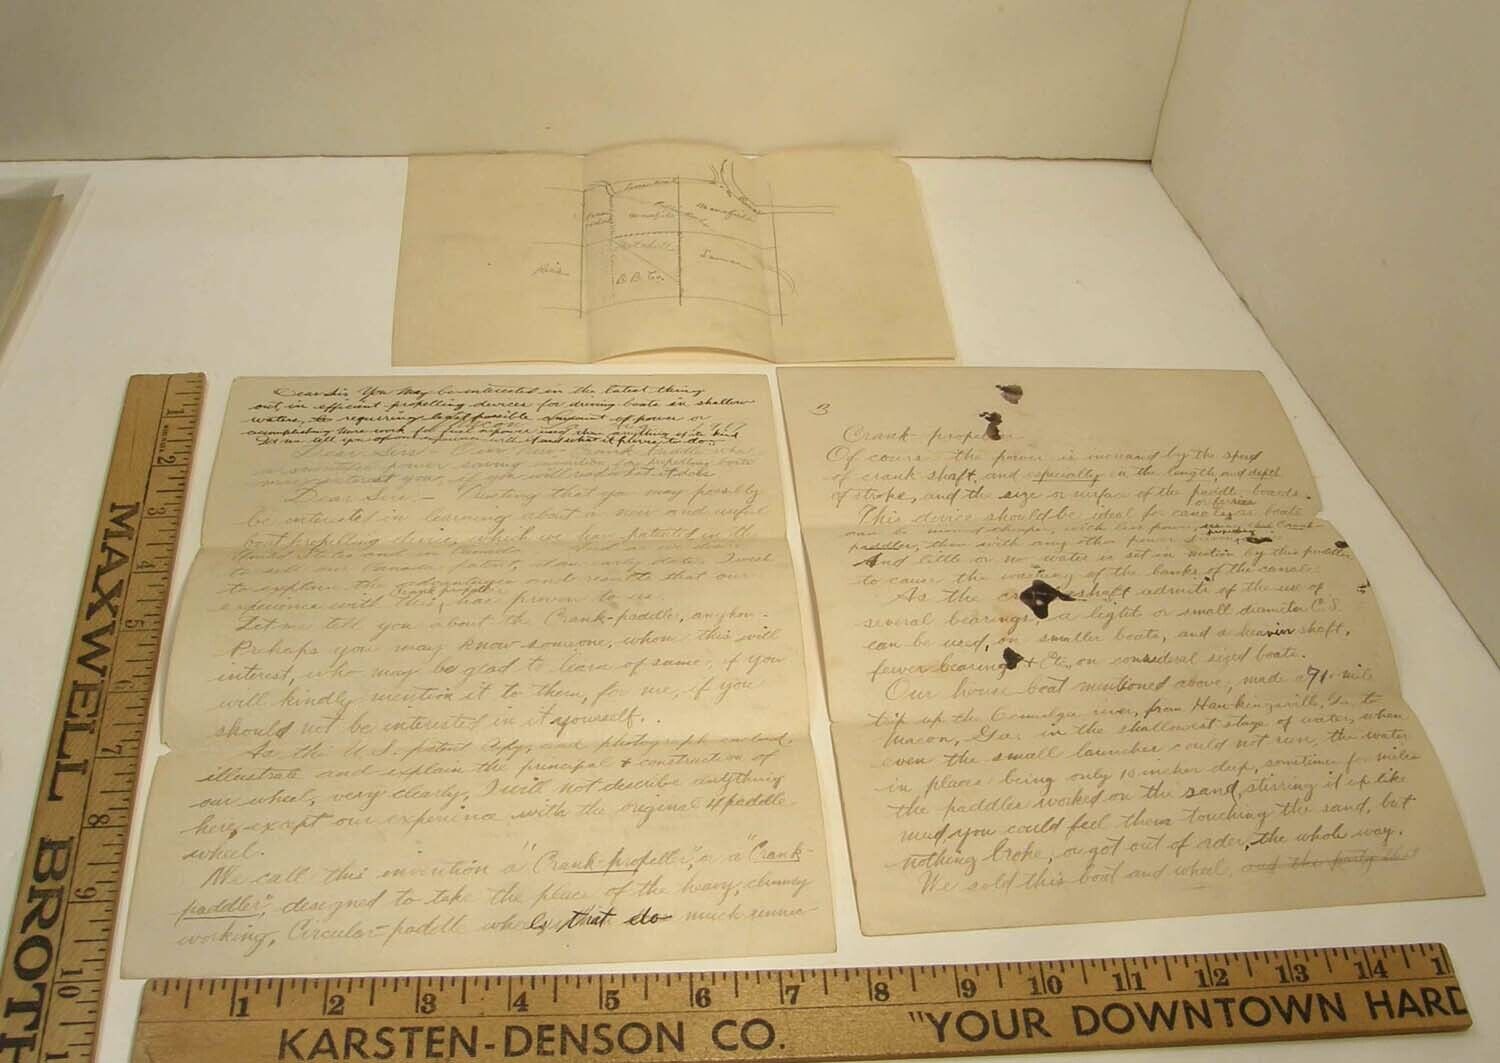 Mansfield
B.B. Co.
Dear Sir You May be interested in the latest thing
out, in efficient propelling devices for driving boats in shallow
waters, requiring least possible amount of power or
accomplishing more work for fuel or power used than anything of its kind
Let me tell you of our experience with it and what it
Dear Sirs: Our New Crank Paddle
power saving invention for propelling boats
may interest you, if you will
Dear Sir:- Trusting that you may possibly
be interested in learning about a new and useful
boat propelling device, which we have patented in the
United States and in Canada
to sell our Canada patent, at an early date, I wish
to explain the advantages and results that our
Crank propeller
experience with this, has proven to us
Let me tell you about the Crank-paddler, anyhow.
Perhaps you may know someone, whom this will
interest, who may be glad to learn of same, if you
will kindly mention it to them, for me, if you
should not be interested in it yourself.
As the U.S. patent Copy, and photograph enclosed,
illustrate and explain the principal & construction of
our wheel, very clearly, I will not describe anything
here, except our experience with the original 4 paddle
wheel.
We call this invention a "Crank-propeller", or a "Crank-
paddler", designed to take the place of the heavy, clumsy
working, Circular-paddle wheels that do much
3
Crank-propeller
Of course the power is increased by the speed
of crank shaft, and especially in the length, and depth
of stroke, and the size or surface of the paddle boards.
or ferries
This device should be ideal for canals, as boats
can be moved cheaper, with less power, using
paddler, than with any other power
And little or no water is set in motion by this paddler
to cause the washing of the banks of the canals.
As the crankshaft admits of the use of
several bearings, a light or small diameter C.S.
can be used, on smaller boats, and a heavier shaft,
fewer bearings & Etc., on considerable sized boats.
Our house boat mentioned above, made a 71 mile
trip up the Ocmulgee river, from Hawkinsville, Ga, to
Macon, Ga. in the shallowest stage of water, when
even the small launches could not run, the water
in places being only 10 inches deep, sometimes for miles
the paddles worked on the sand, stirring it up like
mud you could feel them touching the sand, but
nothing broke, or got out of order, the whole way.
We sold this boat and wheel, and the party
MAXWELL BROTH
1 2 3 4 5 6 7 8 9 10 1
1 2 3 4 5 6 7 8 9 10 11 12 13 14 1
KARSTEN-DENSON CO. "YOUR DOWNTOWN HARD